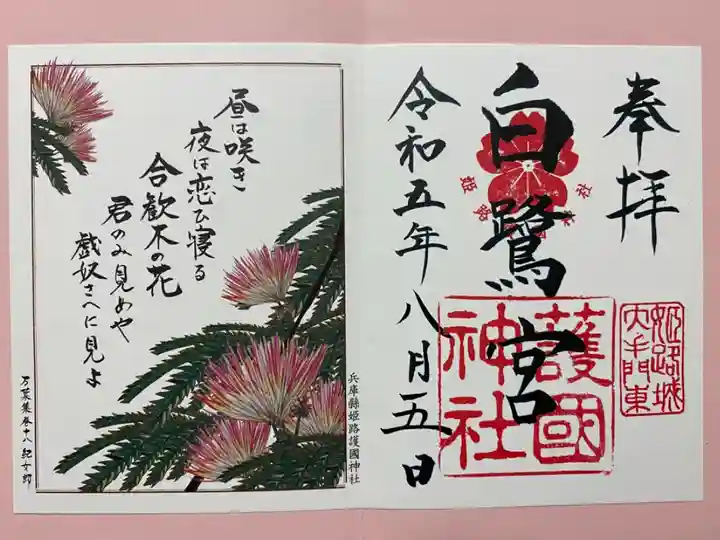 奉拝
白鷺宮
令和五年八月五日
護國神社
姫路城
大手門東
昼は咲き
夜は恋ひ寝る
合歓木の花
君のみ見めや
戯奴さへに見よ
兵庫縣姫路護國神社